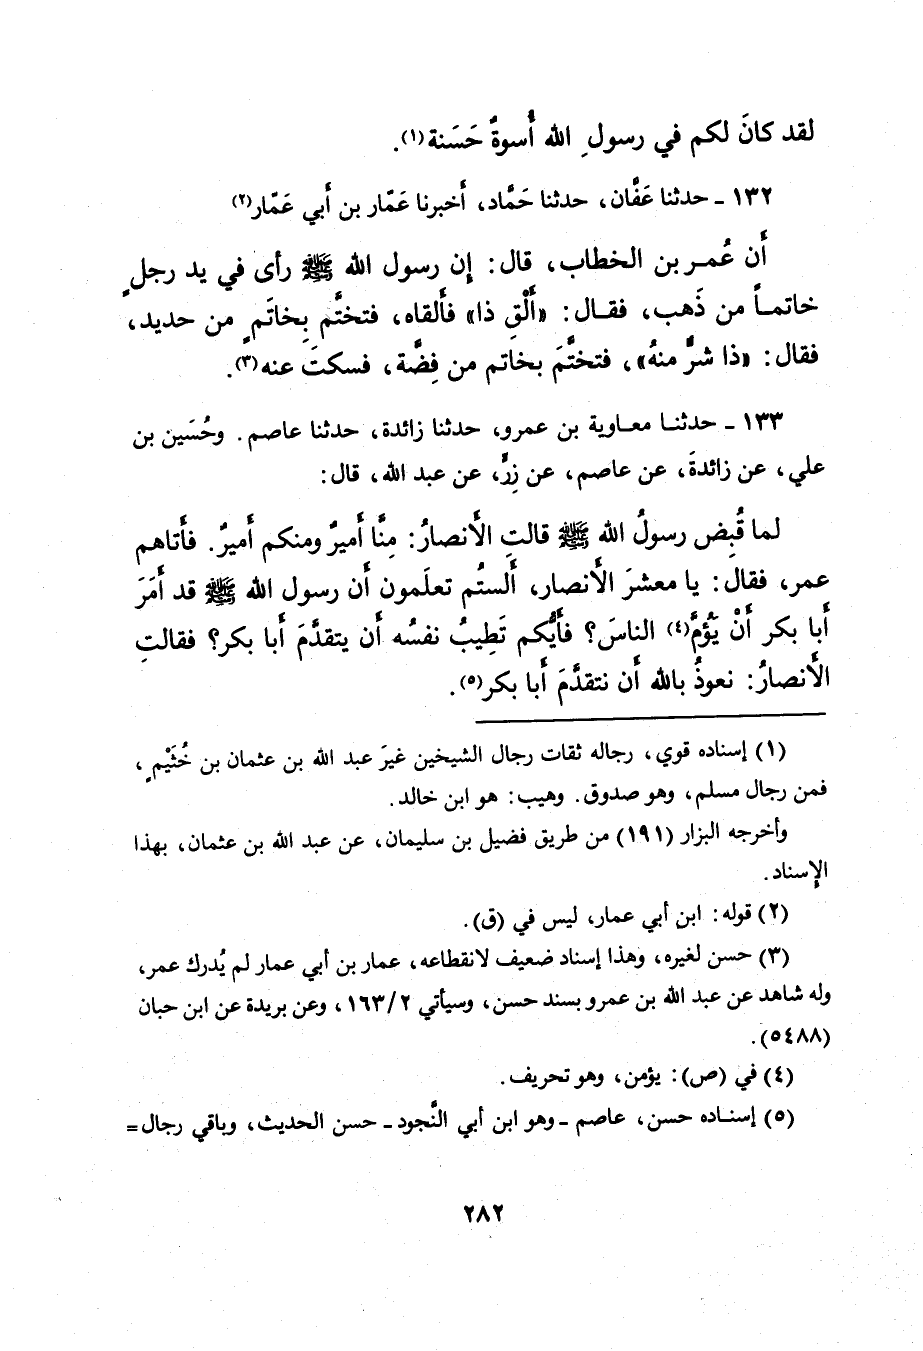 لقد كانَ لكم في رسولِ الله أُسوةٌ حَسَنة(١).
١٣٢ ـ حدثنا عَفَّان، حدثنا حَمَّاد، أخبرنا عَمّار بن أبي عَمّار(٢)
أن عُمـر بن الخطاب، قال: إن رسول الله ﷺ رأى في يد رجلٍ
خاتمـاً من ذَهب، فقـال: «أَلْقِ ذا» فألقاه، فتختَّم بِخاتَمٍ من حديد،
فقال: «ذا شرٌّ منهُ»، فتختَّمَ بخاتم من فِضَّة، فسكتَ عنه(٣).
١٣٣ ـ حدثنـا معـاوية بن عمرو، حدثنا زائدة، حدثنا عاصم. وحُسَين بن
علي، عن زائدةَ، عن عاصم، عن زِرٍّ، عن عبد الله، قال:
لما قُبِض رسولُ الله ﷺ قالتِ الأنصارُ: مِنَّا أميرٌ ومنكم أميرٌ. فأتاهم
عمر، فقال: يا معشرَ الأنصار، ألستُم تعلَمون أن رسول الله ﷺ قد أَمَرَ
أبا بكر أنْ يَؤُمَّ(٤) الناسَ؟ فأيُّكم تَطِيبُ نفسُه أن يتقدَّمَ أبا بكر؟ فقالتِ
الأنصارُ: نعوذُ بالله أن نتقدَّمَ أبا بكر(٥).
(١) إسناده قوي، رجاله ثقات رجال الشيخين غيرَ عبد الله بن عثمان بن خُثَيْمٍ،
فمن رجال مسلم، وهو صدوق. وهيب: هو ابن خالد.
وأخرجه البزار (١٩١) من طريق فضيل بن سليمان، عن عبد الله بن عثمان، بهذا
الإسناد.
(٢) قوله: ابن أبي عمار، ليس في (ق).
(٣) حسن لغيره، وهذا إسناد ضعيف لانقطاعه، عمار بن أبي عمار لم يُدرك عمر،
وله شاهد عن عبد الله بن عمرو بسند حسن، وسيأتي ١٦٣/٢، وعن بريدة عن ابن حبان
(٥٤٨٨).
(٤) في (ص): يؤمن، وهو تحريف.
(٥) إسنـاده حسن، عاصم ـ وهو ابن أبي النَّجود ـ حسن الحديث، وباقي رجال =
٢٨٢